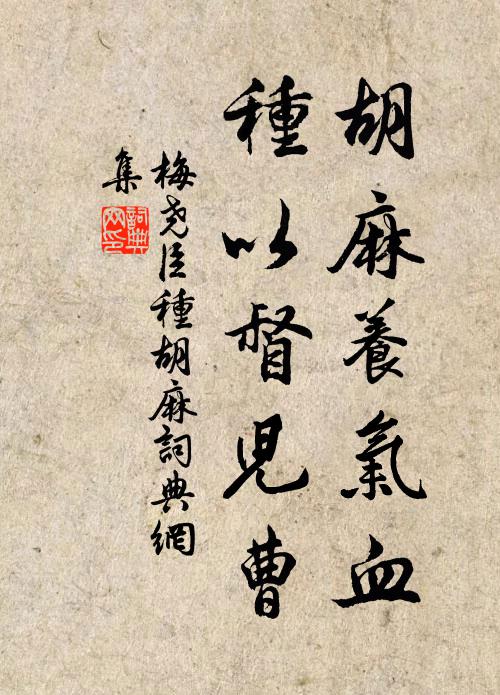 胡麻養氣血
種以督兒曹
梅堯臣種胡麻詞典網
集
詞典
网印